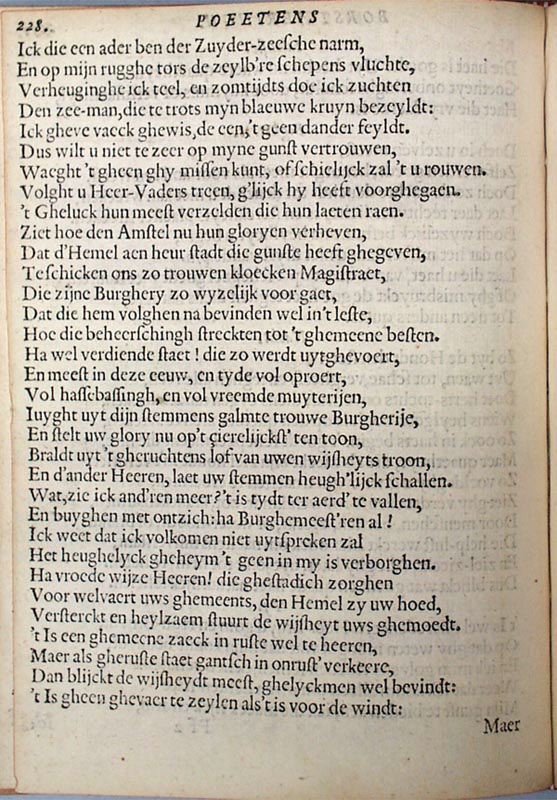 228. POEETENS
Ick die een ader ben der Zuyder-zeesche narm,
En op mijn rugghe tors de zeylb're schepens vluchte,
Verheuginghe ick teel, en zomtijdts doe ick zuchten
Den zee-man, die te trots myn blaeuwe kruyn bezeyldt:
Ick gheve vaeck ghewis, de een, 't geen dander feyldt.
Dus wilt u niet te zeer op myne gunst vertrouwen,
Waeght 't gheen ghy missen kunt, of schielijck zal 't u rouwen.
Volght u Heer-Vaders treen, g'lijck hy heeft voorghegaen.
't Gheluck hun meest verzelden die hun laeten raen.
Ziet hoe den Amstel nu hun gloryen verheven,
Dat d'Hemel aen heur stadt die gunste heeft ghegeven,
Te schicken ons zo trouwen kloecken Magistraet,
Die zijne Burghery zo wyzelijk voor gaet,
Dat die hem volghen na bevinden wel in't leste,
Hoe die beheerschingh streckten tot 't ghemeene besten.
Ha wel verdiende staet! die zo werdt uytghevoert,
En meest in deze eeuw, en tyde vol oproert,
Vol hassebassingh, en vol vreemde muyterijen,
Iuyght uyt dijn stemmens galmte trouwe Burgherije,
En stelt uw glory nu op't cierelijckst' ten toon,
Braldt uyt 't gheruchtens lof van uwen wijsheyts troon,
En d'ander Heeren, laet uw stemmen heugh'lijck schallen.
Wat, zie ick and'ren meer? 't is tydt ter aerd' te vallen,
En buyghen met ontzich: ha Burghemeest'ren al!
Ick weet dat ick volkomen niet uytspreken zal
Het heughelyck gheheym 't geen in my is verborghen.
Ha vroede wijze Heeren! die ghestadich zorghen
Voor welvaert uws ghemeents, den Hemel zy uw hoed,
Versterckt en heylzaem stuurt de wijsheyt uws ghemoedt.
't Is een ghemeene zaeck in ruste wel te heeren,
Maer als gheruste staet gantsch in onrust' verkeere,
Dan blijckt de wijsheydt meest, ghelyckmen wel bevindt:
't Is gheen ghevaer te zeylen als't is voor de windt:
Maer